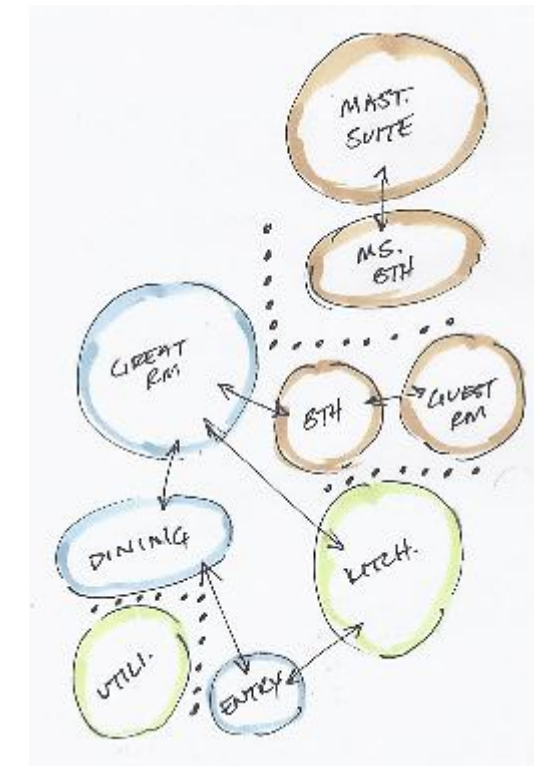 MAST.
SUITE
MS.
BTH
GREAT
RM
BTH
GUEST
RM
DINING
KITCH.
UTILI.
ENTRY